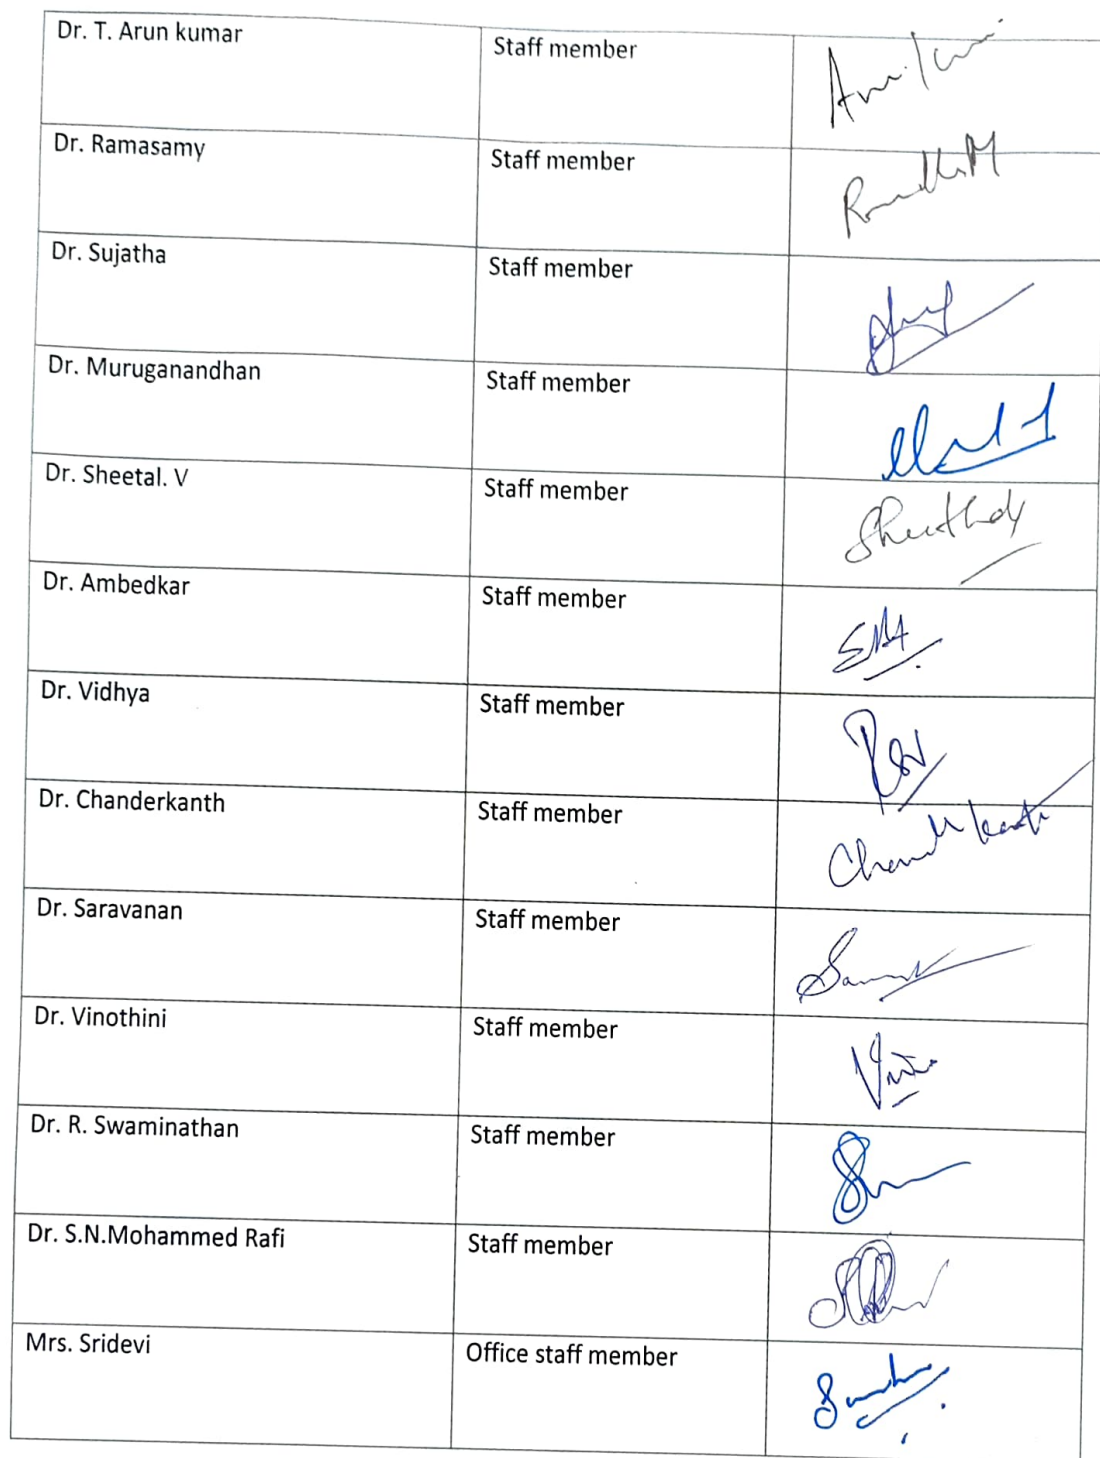 Dr. T. Arun kumar Staff member
Dr. Ramasamy Staff member
Dr. Sujatha Staff member
Dr. Muruganandhan Staff member
Dr. Sheetal. V Staff member
Dr. Ambedkar Staff member
Dr. Vidhya Staff member
Dr. Chanderkanth Staff member
Dr. Saravanan Staff member
Dr. Vinothini Staff member
Dr. R. Swaminathan Staff member
Dr. S.N.Mohammed Rafi Staff member
Mrs. Sridevi Office staff member